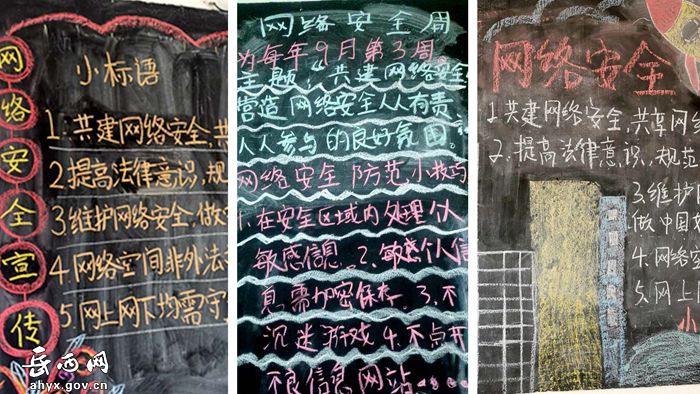 网络安全宣传
小标语
1.共建网络安全,共
2.提高法律意识,规
3.维护网络安全,做
4.网络空间非外法
5.网上网下均需守
岳西网
ahyx.gov.cn
网络安全周
为每年9月第3周。
主题:“共建网络安全
营造网络安全人人有责
人人参与的良好氛围。
网络安全防范小技巧
1.在安全区域内处理个人
敏感信息.2.敏感个人信
息需加密保存.3.不
沉迷游戏4.不点开
不良信息网站……
网络安全
1.共建网络安全,共享网络
2.提高法律意识,规范
3.维护
做中国
4.网络空
5.网上
小